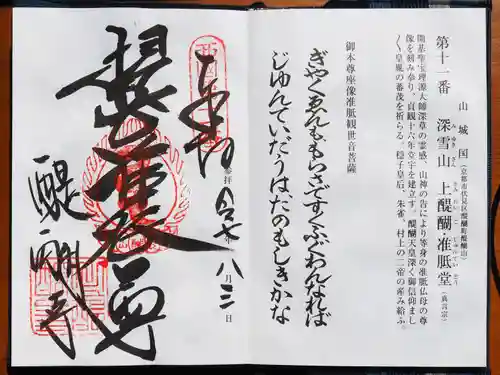 第十一番
山城国（京都市伏見区醍醐醍醐山）
深雪山 上醍醐・准胝堂（真言宗）
みゆきさん かみだいご じゅんていどう
開基聖宝理源大師深草の霊感、山神の告により等身の准胝仏母の尊
像を刻み参り、貞観十六年堂宇を建立す。醍醐天皇深く御信仰まし
皇風の蕃茂を祈らる。穏子皇后、朱雀、村上の二帝の産み給ふ。
御本尊座像准胝観世音菩薩
ぎやくゑんももらさですくふぐわんなれば
じゆんていだうはたのもしきかな
奉拝
参拝
月
日
醍醐寺